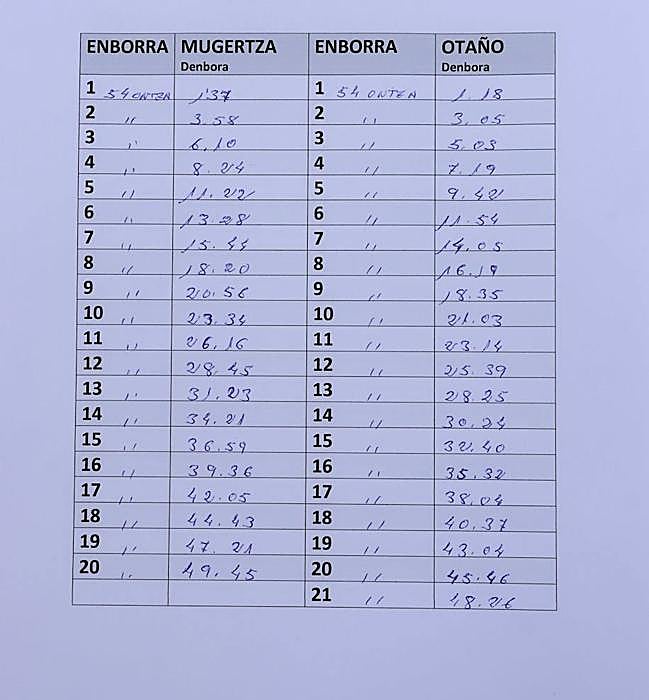 ENBORRA MUGERTZA ENBORRA OTAÑO
Denbora Denbora
1 54 ONTZA 1'37 1 54 ONTZA 1.18
2 ,, 3.58 2 ,, 3.05
3 ,, 6.10 3 ,, 5.03
4 ,, 8.24 4 ,, 7.19
5 ,, 11.22 5 ,, 9.42
6 ,, 13.28 6 ,, 11.54
7 ,, 15.44 7 ,, 14.05
8 ,, 18.20 8 ,, 16.19
9 ,, 20.56 9 ,, 18.35
10 ,, 23.34 10 ,, 21.03
11 ,, 26.16 11 ,, 23.14
12 ,, 28.45 12 ,, 25.39
13 ,, 31.23 13 ,, 28.25
14 ,, 34.21 14 ,, 30.24
15 ,, 36.59 15 ,, 32.40
16 ,, 39.36 16 ,, 35.32
17 ,, 42.05 17 ,, 38.04
18 ,, 44.43 18 ,, 40.37
19 ,, 47.21 19 ,, 43.04
20 ,, 49.45 20 ,, 45.46
21 ,, 48.26